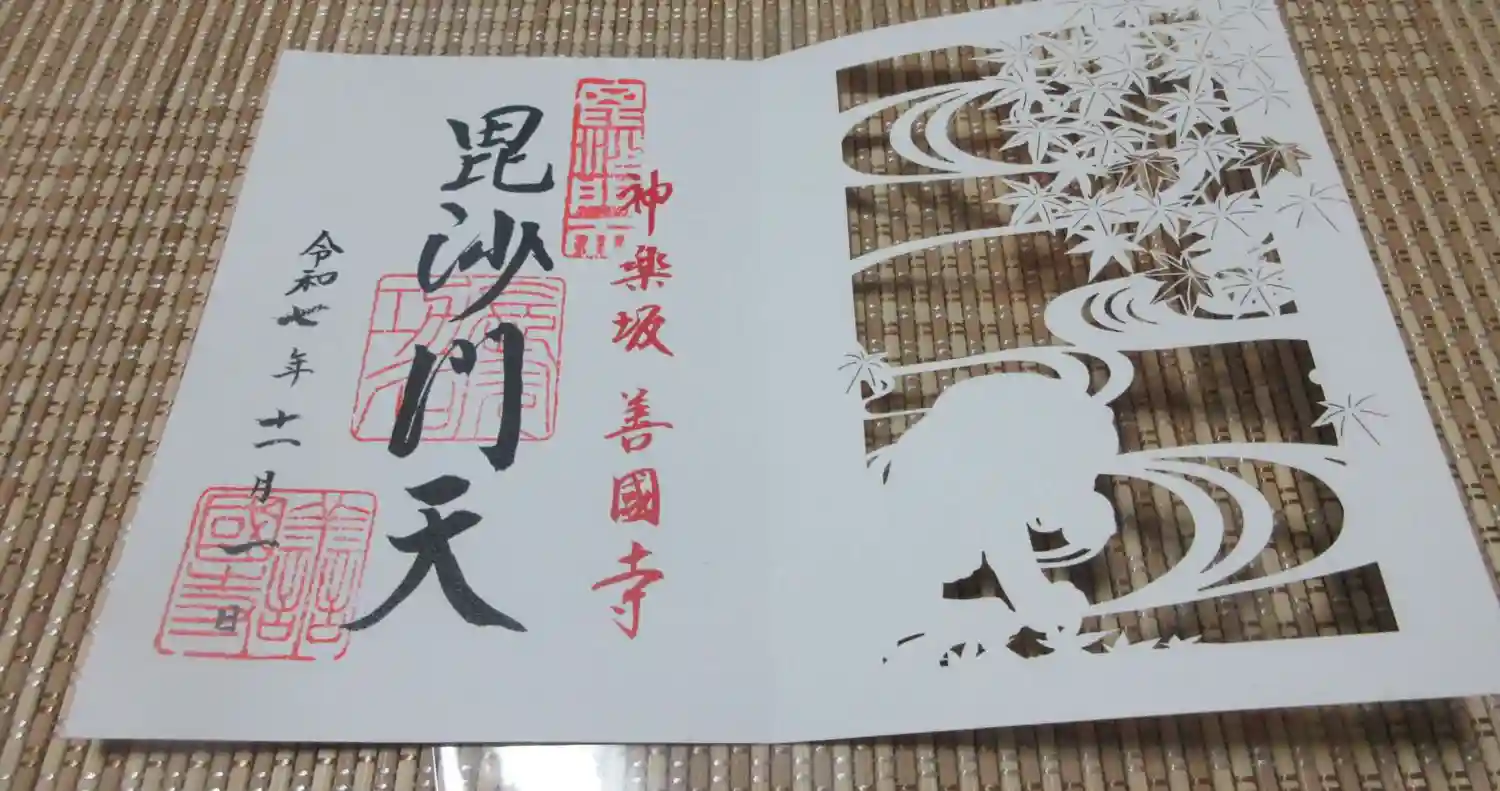 神楽坂 善國寺
毘沙門天
令和七年 十一月一日
善國寺